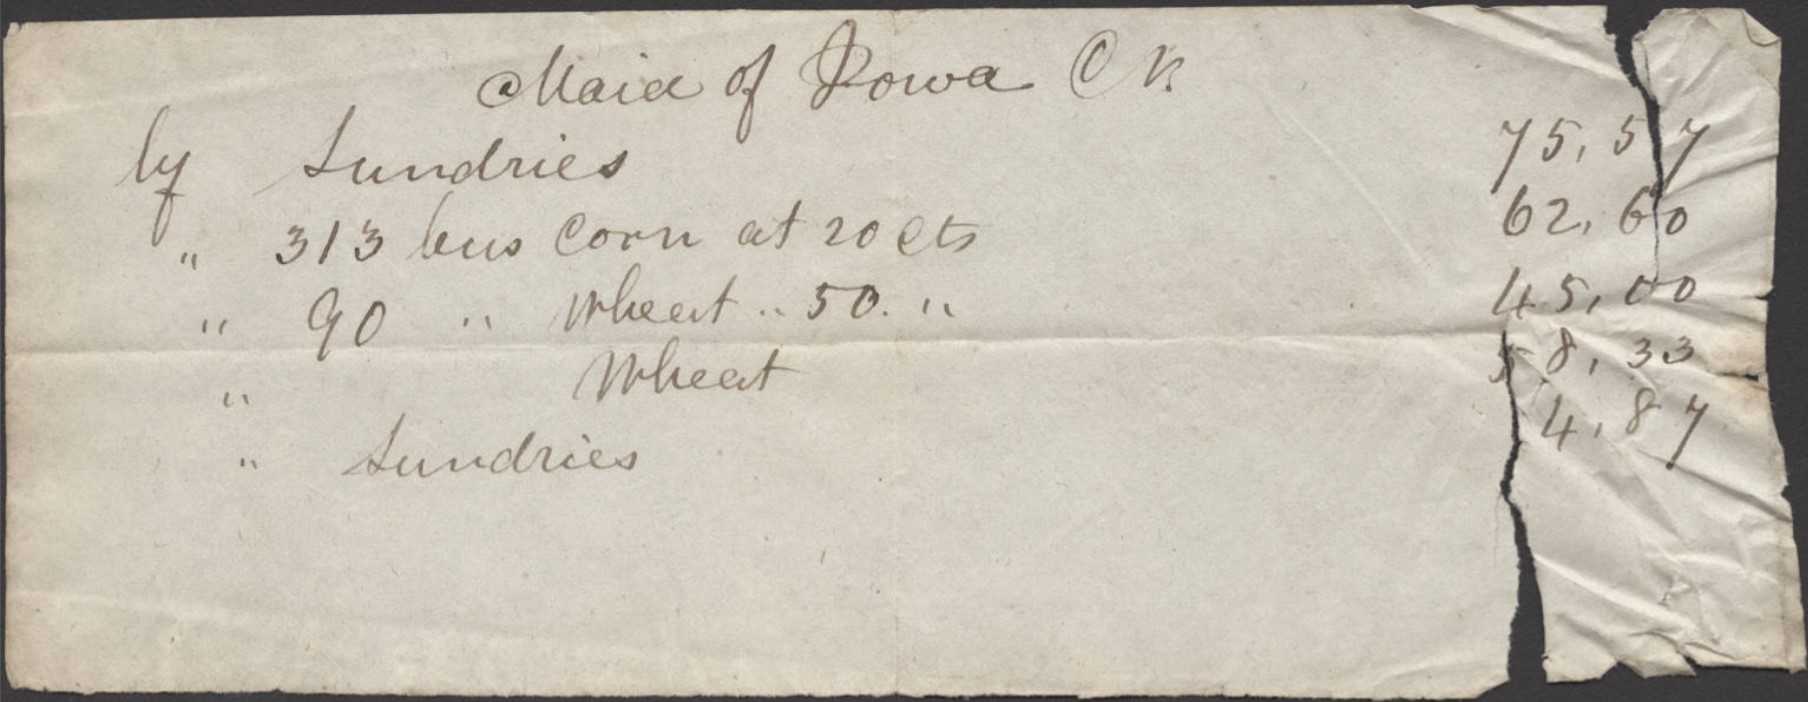 Maid of Iowa CR
by Sundries 75,57
" 313 bus Corn at 20 cts 62,60
" 90 " Wheat " 50. " 45,00
" Wheat 58,33
" Sundries 4,87